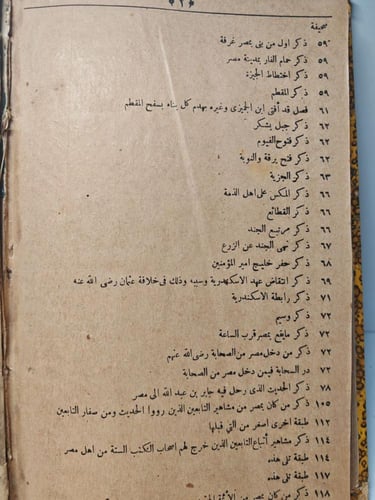 ﴿٣﴾
صحيفة
٥٩ ذكر اول من بنى بمصر غرفة
٥٩ ذكر حمام الفار بمدينة مصر
٥٩ ذكر اختطاط الجيزة
٥٩ ذكر المقطم
٦١ فصل قد أفتى ابن الجميزى وغيره بهدم كل بناء بسفح المقطم
٦٢ ذكر جبل يشكر
٦٢ ذكر فتوح الفيوم
٦٢ ذكر فتح برقة والنوبة
٦٣ ذكر الجزية
٦٦ ذكر المكس على اهل الذمة
٦٦ ذكر القطائع
٦٦ ذكر مرتبع الجند
٦٧ ذكر نهى الجند عن الزرع
٦٨ ذكر حفر خليج امير المؤمنين
٦٩ ذكر انتقاض عهد الاسكندرية وسببه وذلك فى خلافة عثمان رضى الله عنه
٧١ ذكر رابطة الاسكندرية
٧٢ ذكر وسيم
٧٢ ذكر مايقع بمصر قرب الساعة
٧٢ ذكر من دخل مصر من الصحابة رضى الله عنهم
٧٢ در السحابة فيمن دخل مصر من الصحابة
٧٨ ذكر الحديث الذى رحل فيه جابر بن عبد الله الى مصر
١٠٥ ذكر من كان بمصر من مشاهير التابعين الذين رووا الحديث ومن صغار التابعين
١١٢ طبقة اخرى اصغر من التى قبلها
١١٤ ذكر مشاهير أتباع التابعين الذين خرج لهم اصحاب الكتب الستة من اهل مصر
١١٤ طبقة تلى هذه
١١٧ طبقة تلى هذه
١١٨ ذكر من كان بمصر من الأئمة